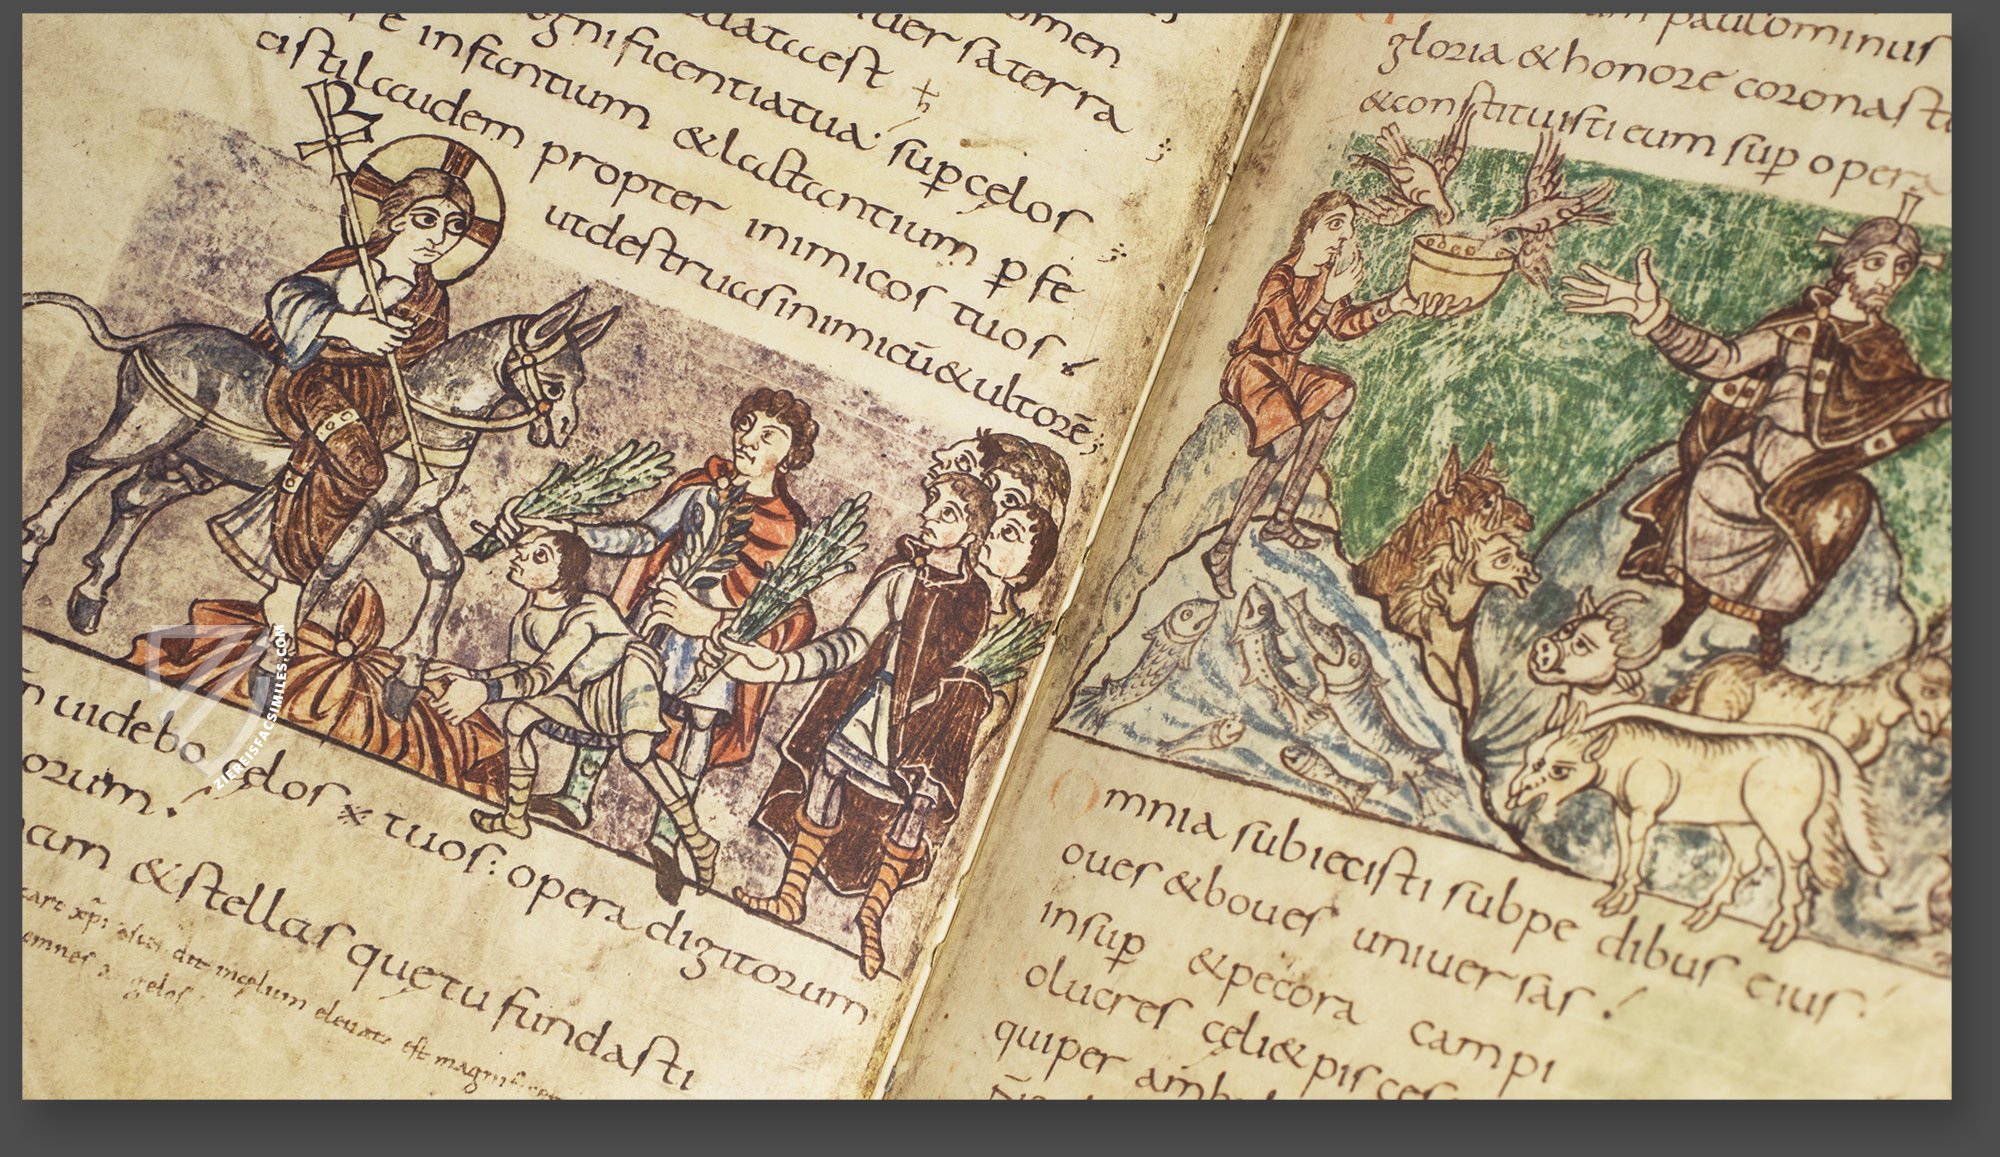 omen
uersaterra
uatacest
ognificentiatua: sup celos
e infantium &lactantium pfe
cistilaudem propter inimicos tuos
utdestruasinimicū&ultorē
uidebo celos tuos: opera digitorum
orum
&stellas quetu fundasti
incelum eleuata est
gelos
paulominus
gloria &honore coronasti
&constituisti eum sup opera
Omnia subiecisti subpe dibus eius
oues &boues uniuersas
insup &pecora campi
olucres celi&pisces
quiper
ZIEREISFACSIMILES.COM